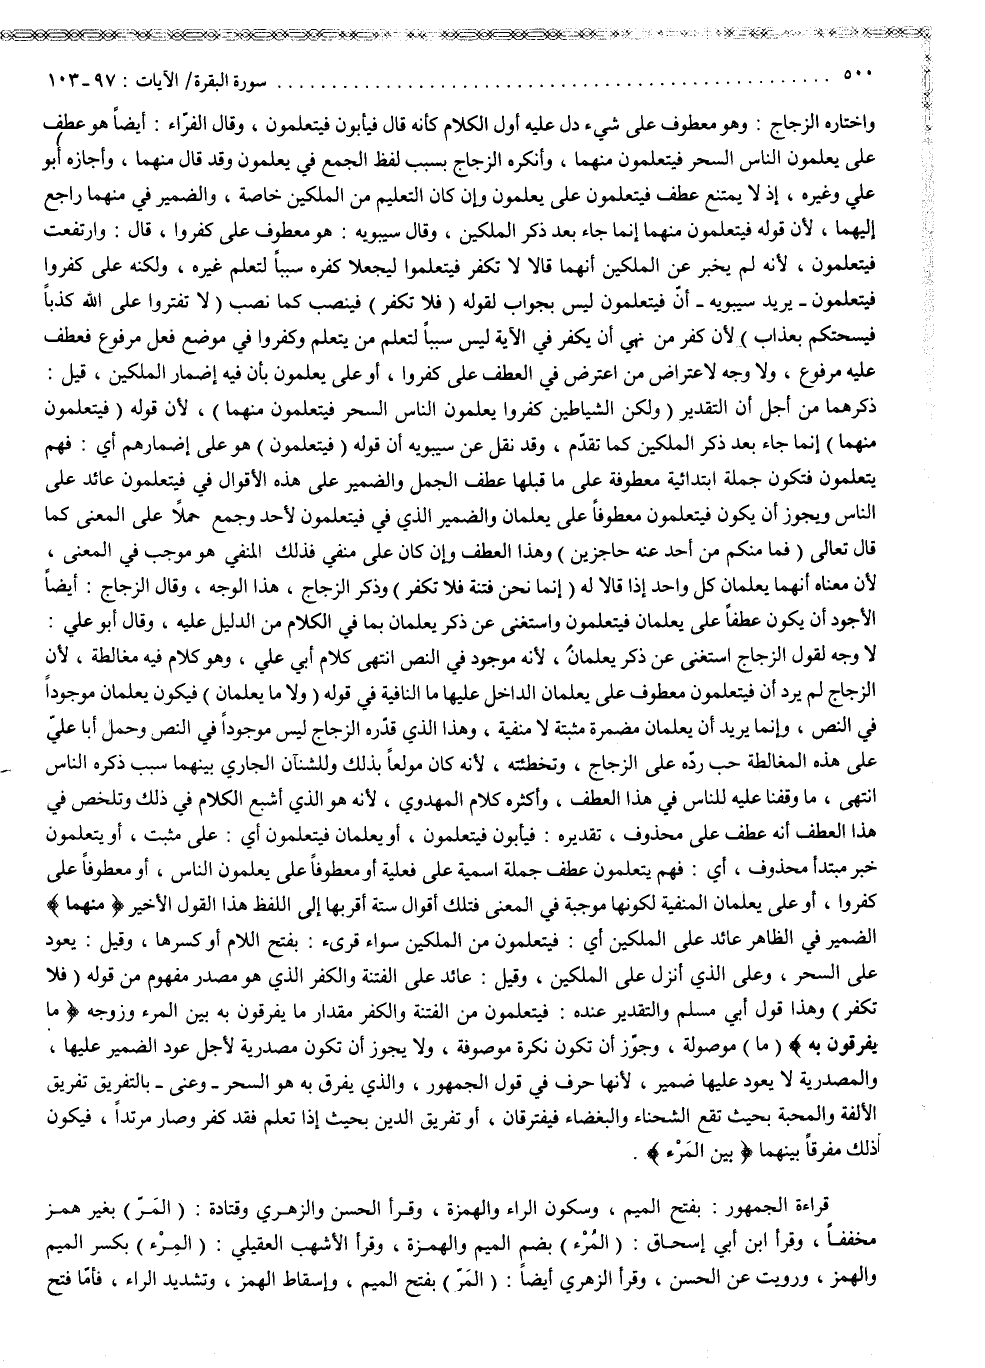 ٥٠٠ ........ سورة البقرة/ الآيات : ٩٧ - ١٠٣
واختاره الزجاج : وهو معطوف على شيء دل عليه أول الكلام كأنه قال فيأبون فيتعلمون ، وقال الفرّاء : أيضاً هو عطف
على يعلمون الناس السحر فيتعلمون منهما ، وأنكره الزجاج بسبب لفظ الجمع في يعلمون وقد قال منهما ، وأجازه أبو
علي وغيره ، إذ لا يمتنع عطف فيتعلمون على يعلمون وإن كان التعليم من الملكين خاصة ، والضمير في منهما راجع
إليهما ، لأن قوله فيتعلمون منهما إنما جاء بعد ذكر الملكين ، وقال سيبويه : هو معطوف على كفروا ، قال : وارتفعت
فيتعلمون ، لأنه لم يخبر عن الملكين أنهما قالا لا تكفر فيتعلموا ليجعلا كفره سبباً لتعلم غيره ، ولكنه على كفروا
فيتعلمون - يريد سيبويه - أنّ فيتعلمون ليس بجواب لقوله ( فلا تكفر ) فينصب كما نصب ( لا تفتروا على الله كذباً
فيسحتكم بعذاب ) لأن كفر من نهي أن يكفر في الآية ليس سبباً لتعلم من يتعلم وكفروا في موضع فعل مرفوع فعطف
عليه مرفوع ، ولا وجه لاعتراض من اعترض في العطف على كفروا ، أو على يعلمون بأن فيه إضمار الملكين ، قيل :
ذكرهما من أجل أن التقدير ( ولكن الشياطين كفروا يعلمون الناس السحر فيتعلمون منهما ) ، لأن قوله ( فيتعلمون
منهما ) إنما جاء بعد ذكر الملكين كما تقدّم ، وقد نقل عن سيبويه أن قوله ( فيتعلمون ) هو على إضمارهم أي : فهم
يتعلمون فتكون جملة ابتدائية معطوفة على ما قبلها عطف الجمل والضمير على هذه الأقوال في فيتعلمون عائد على
الناس ويجوز أن يكون فيتعلمون معطوفاً على يعلمان والضمير الذي في فيتعلمون لأحد وجمع حملاً على المعنى كما
قال تعالى ( فما منكم من أحد عنه حاجزين ) وهذا العطف وإن كان على منفي فذلك المنفي هو موجب في المعنى ،
لأن معناه أنهما يعلمان كل واحد إذا قالا له ( إنما نحن فتنة فلا تكفر ) وذكر الزجاج ، هذا الوجه ، وقال الزجاج : أيضاً
الأجود أن يكون عطفاً على يعلمان فيتعلمون واستغنى عن ذكر يعلمان بما في الكلام من الدليل عليه ، وقال أبو علي :
لا وجه لقول الزجاج استغنى عن ذكر يعلمان ، لأنه موجود في النص انتهى كلام أبي علي ، وهو كلام فيه مغالطة ، لأن
الزجاج لم يرد أن فيتعلمون معطوف على يعلمان الداخل عليها ما النافية في قوله ( ولا ما يعلمان ) فيكون يعلمان موجوداً
في النص ، وإنما يريد أن يعلمان مضمرة مثبتة لا منفية ، وهذا الذي قدّره الزجاج ليس موجوداً في النص وحمل أبا عليّ
على هذه المغالطة حب ردّه على الزجاج ، وتخطئته ، لأنه كان مولعاً بذلك وللشنآن الجاري بينهما سبب ذكره الناس
انتهى ، ما وقفنا عليه للناس في هذا العطف ، وأكثره كلام المهدوي ، لأنه هو الذي أشبع الكلام في ذلك وتلخص في
هذا العطف أنه عطف على محذوف ، تقديره : فيأبون فيتعلمون ، أو يعلمان فيتعلمون أي : على مثبت ، أو يتعلمون
خبر مبتدأ محذوف ، أي : فهم يتعلمون عطف جملة اسمية على فعلية أو معطوفاً على يعلمون الناس ، أو معطوفاً على
كفروا ، أو على يعلمان المنفية لكونها موجبة في المعنى فتلك أقوال ستة أقربها إلى اللفظ هذا القول الأخير ﴿ منهما ﴾
الضمير في الظاهر عائد على الملكين أي : فيتعلمون من الملكين سواء قرىء : بفتح اللام أو كسرها ، وقيل : يعود
على السحر ، وعلى الذي أنزل على الملكين ، وقيل : عائد على الفتنة والكفر الذي هو مصدر مفهوم من قوله ( فلا
تكفر ) وهذا قول أبي مسلم والتقدير عنده : فيتعلمون من الفتنة والكفر مقدار ما يفرقون به بين المرء وزوجه ﴿ ما
يفرقون به ﴾ ( ما ) موصولة ، وجوّز أن تكون نكرة موصوفة ، ولا يجوز أن تكون مصدرية لأجل عود الضمير عليها ،
والمصدرية لا يعود عليها ضمير ، لأنها حرف في قول الجمهور ، والذي يفرق به هو السحر - وعنى - بالتفريق تفريق
الألفة والمحبة بحيث تقع الشحناء والبغضاء فيفترقان ، أو تفريق الدين بحيث إذا تعلم فقد كفر وصار مرتداً ، فيكون
ذلك مفرقاً بينهما ﴿ بين المَرْء ﴾ .
قراءة الجمهور : بفتح الميم ، وسكون الراء والهمزة ، وقرأ الحسن والزهري وقتادة : ( المَرّ ) بغير همز
مخففاً ، وقرأ ابن أبي إسحاق : ( المُرْء ) بضم الميم والهمزة ، وقرأ الأشهب العقيلي : ( المِرْء ) بكسر الميم
والهمز ، ورويت عن الحسن ، وقرأ الزهري أيضاً : ( المَرّ ) بفتح الميم ، وإسقاط الهمز ، وتشديد الراء ، فأمّا فتح